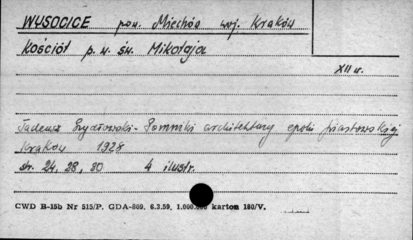 WYSOCICE pow. Miechów woj. Kraków
Kościół p.w. św. Mikołaja
XII w.
Tadeusz Szydłowski - Pomniki architektury epoki piastowskiej
Kraków 1928
str. 24, 28, 30 4 ilustr.
CWD B-15b Nr 515/P. GDA-809. 6.3.59. 1.000.000 karton 180/V.